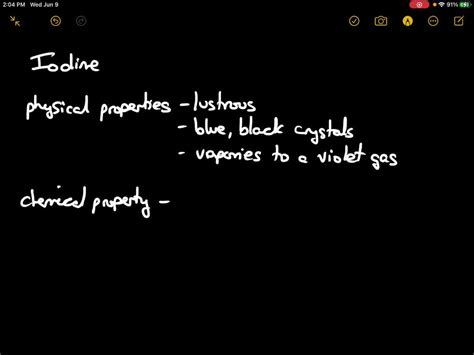 2:04 PM Wed Jun 9
91%
Iodine
physical properties - lustrous
- blue, black crystals
- vapories to a violet gas
chemical property -